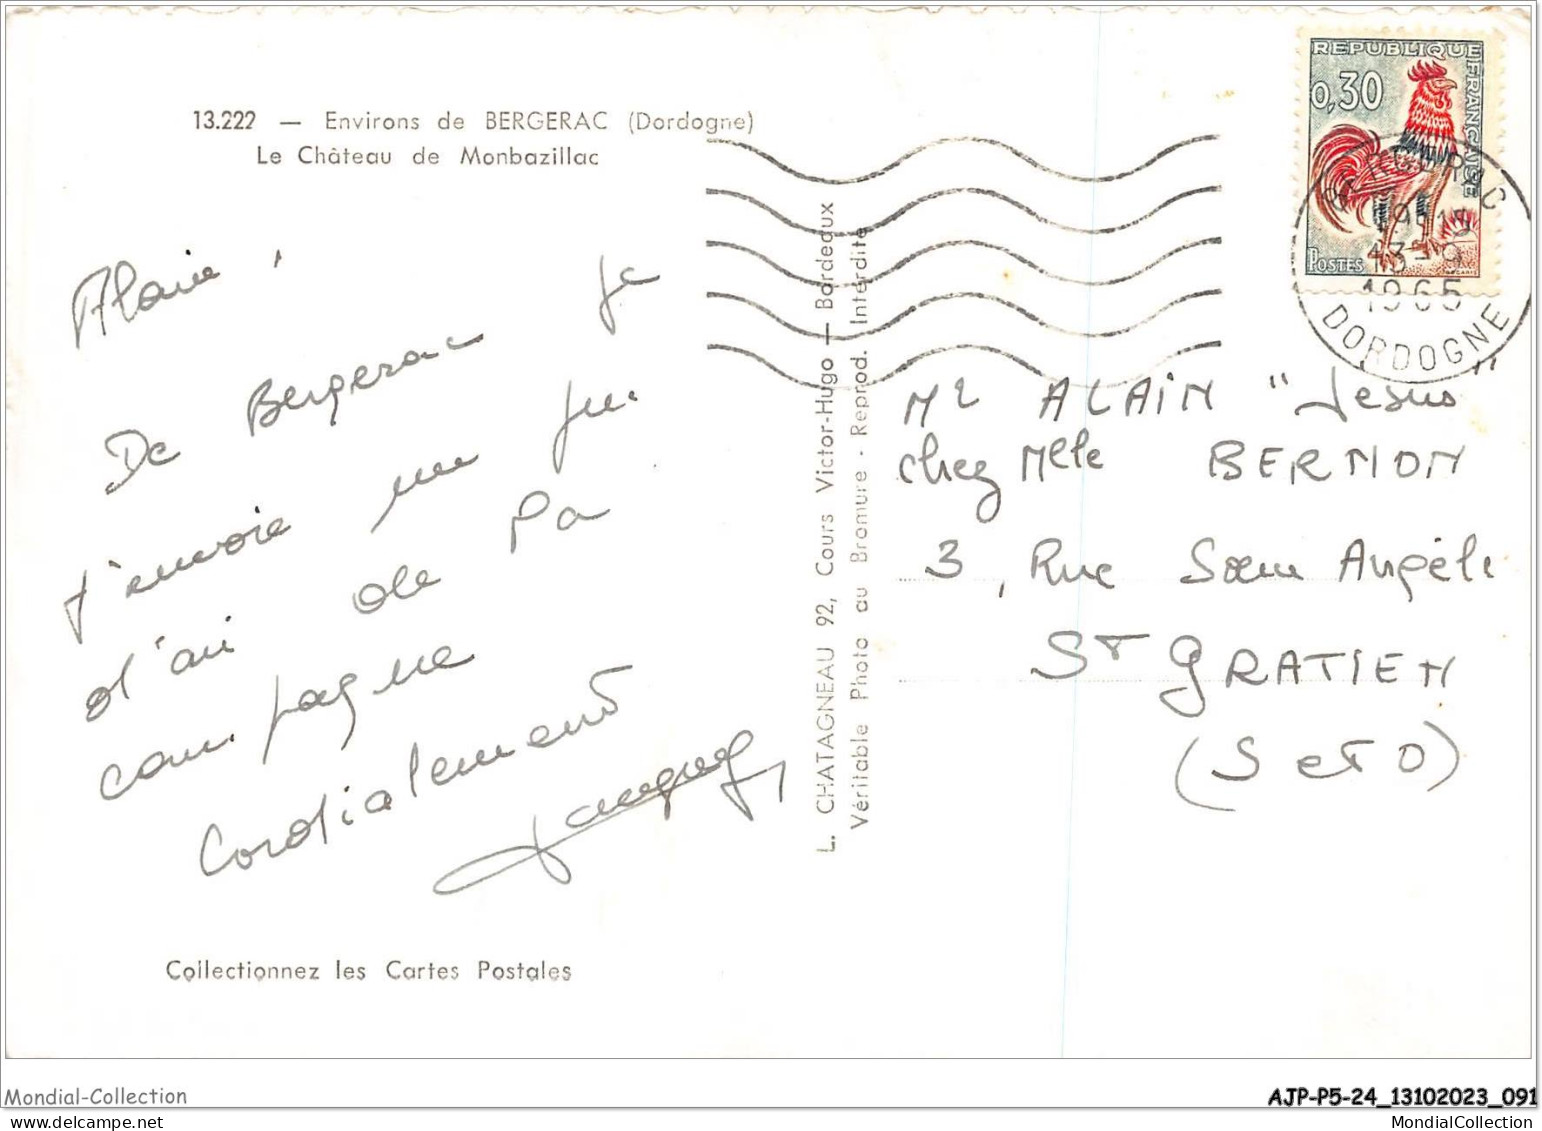 13.222 — Environs de BERGERAC (Dordogne)
Le Château de Monbazillac
REPUBLIQUE FRANÇAISE
0,30
POSTES
BERGERAC
13-9
1965
DORDOGNE
Alain,
De Bergerac je
t'envoie un peu
d'air de la
campagne
Cordialement
L. CHATAGNEAU 92, Cours Victor-Hugo — Bordeaux
Véritable Photo au Bromure - Reprod. Interdite
Mr ALAIN "Jesus"
chez Mlle BERNON
3, Rue Sœur Angèle
ST GRATIEN
(S et O)
Collectionnez les Cartes Postales
Mondial-Collection
AJP-P5-24_13102023_091
MondialCollection